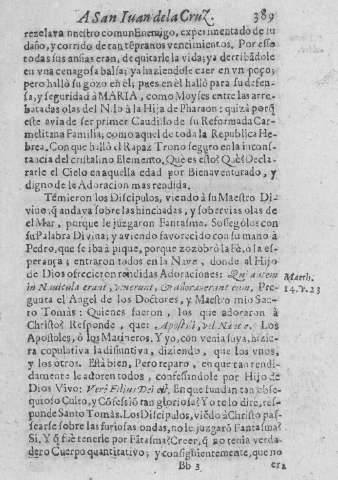 A San Iuan de la Cruz. 389
rezelava nuestro comun Enemigo, experimentado de su
daño, y corrido de tan tẽpranos vencimientos. Por esso
todas sus ansias eran, de quitarle la vida; ya derribãdole
en vna cenagosa balsa; ya haziendole caer en vn poço;
pero hallò su gozo en èl; pues en èl hallò para su defen-
sa, y seguridad à MARIA, como Moyses entre las arre-
batadas olas del Nilo à la Hija de Pharaon: quizà porq̃
este avia de ser primer Caudillo de su Reformada Car-
melitana Familia; como aquel de toda la Republica He-
brea. Con que hallò el Rapaz Trono seguro en la incons-
tancia del cristalino Elemento. Què es esto? Què? Decla-
rarle el Cielo en aquella edad por Bienaventurado, y
digno de le Adoracion mas rendida.
Temieron los Discipulos, viendo à su Maestro Di-
vino, q̃ andava sobre las hinchadas, y sobervias olas de
el Mar, porque le juzgaron Fantasma. Sossegòlos con
su Palabra Divina; y aviendo favorecido con su mano à
Pedro, que se iba à pique, porque zozobrò la Fè, ò la es-
perança; entraron todos en la Nave, donde al Hijo
de Dios ofrecieron rendidas Adoraciones: Qui autem
in Navicula erant, venerunt, & adoraverunt eum. Pre-
Matth.
14. v. 23
gunta el Angel de los Doctores, y Maestro mio San-
to Tomàs: Quienes fueron, los que adoraron à
Christo? Responde, que: Apostoli, vel Nautæ. Los
Apostoles, ò los Marineros. Y yo, con venia suya, hizie-
ra copulativa la disiuntiva, diziendo, que los vnos,
y los otros. Està bien, Pero reparo, en que tan rendi-
damente le adoren todos, confessandole por Hijo de
Dios Vivo: Verè Filius Dei es. En que fundan tan obse-
quioso Culto, y Cõfessiõ tan gloriosa? Yo te lo dirè, res-
punde Santo Tomàs. Los Discipulos, viẽdo à Christo pas-
searse sobre las furiosas ondas, no le juzgarõ Fantasma?
Si, Y q̃ fuè tenerle por Fãtasma? Creer, q̃ no tenia verda-
dero Cuerpo quantitativo; y consiguientemente, que no
Bb 3 era